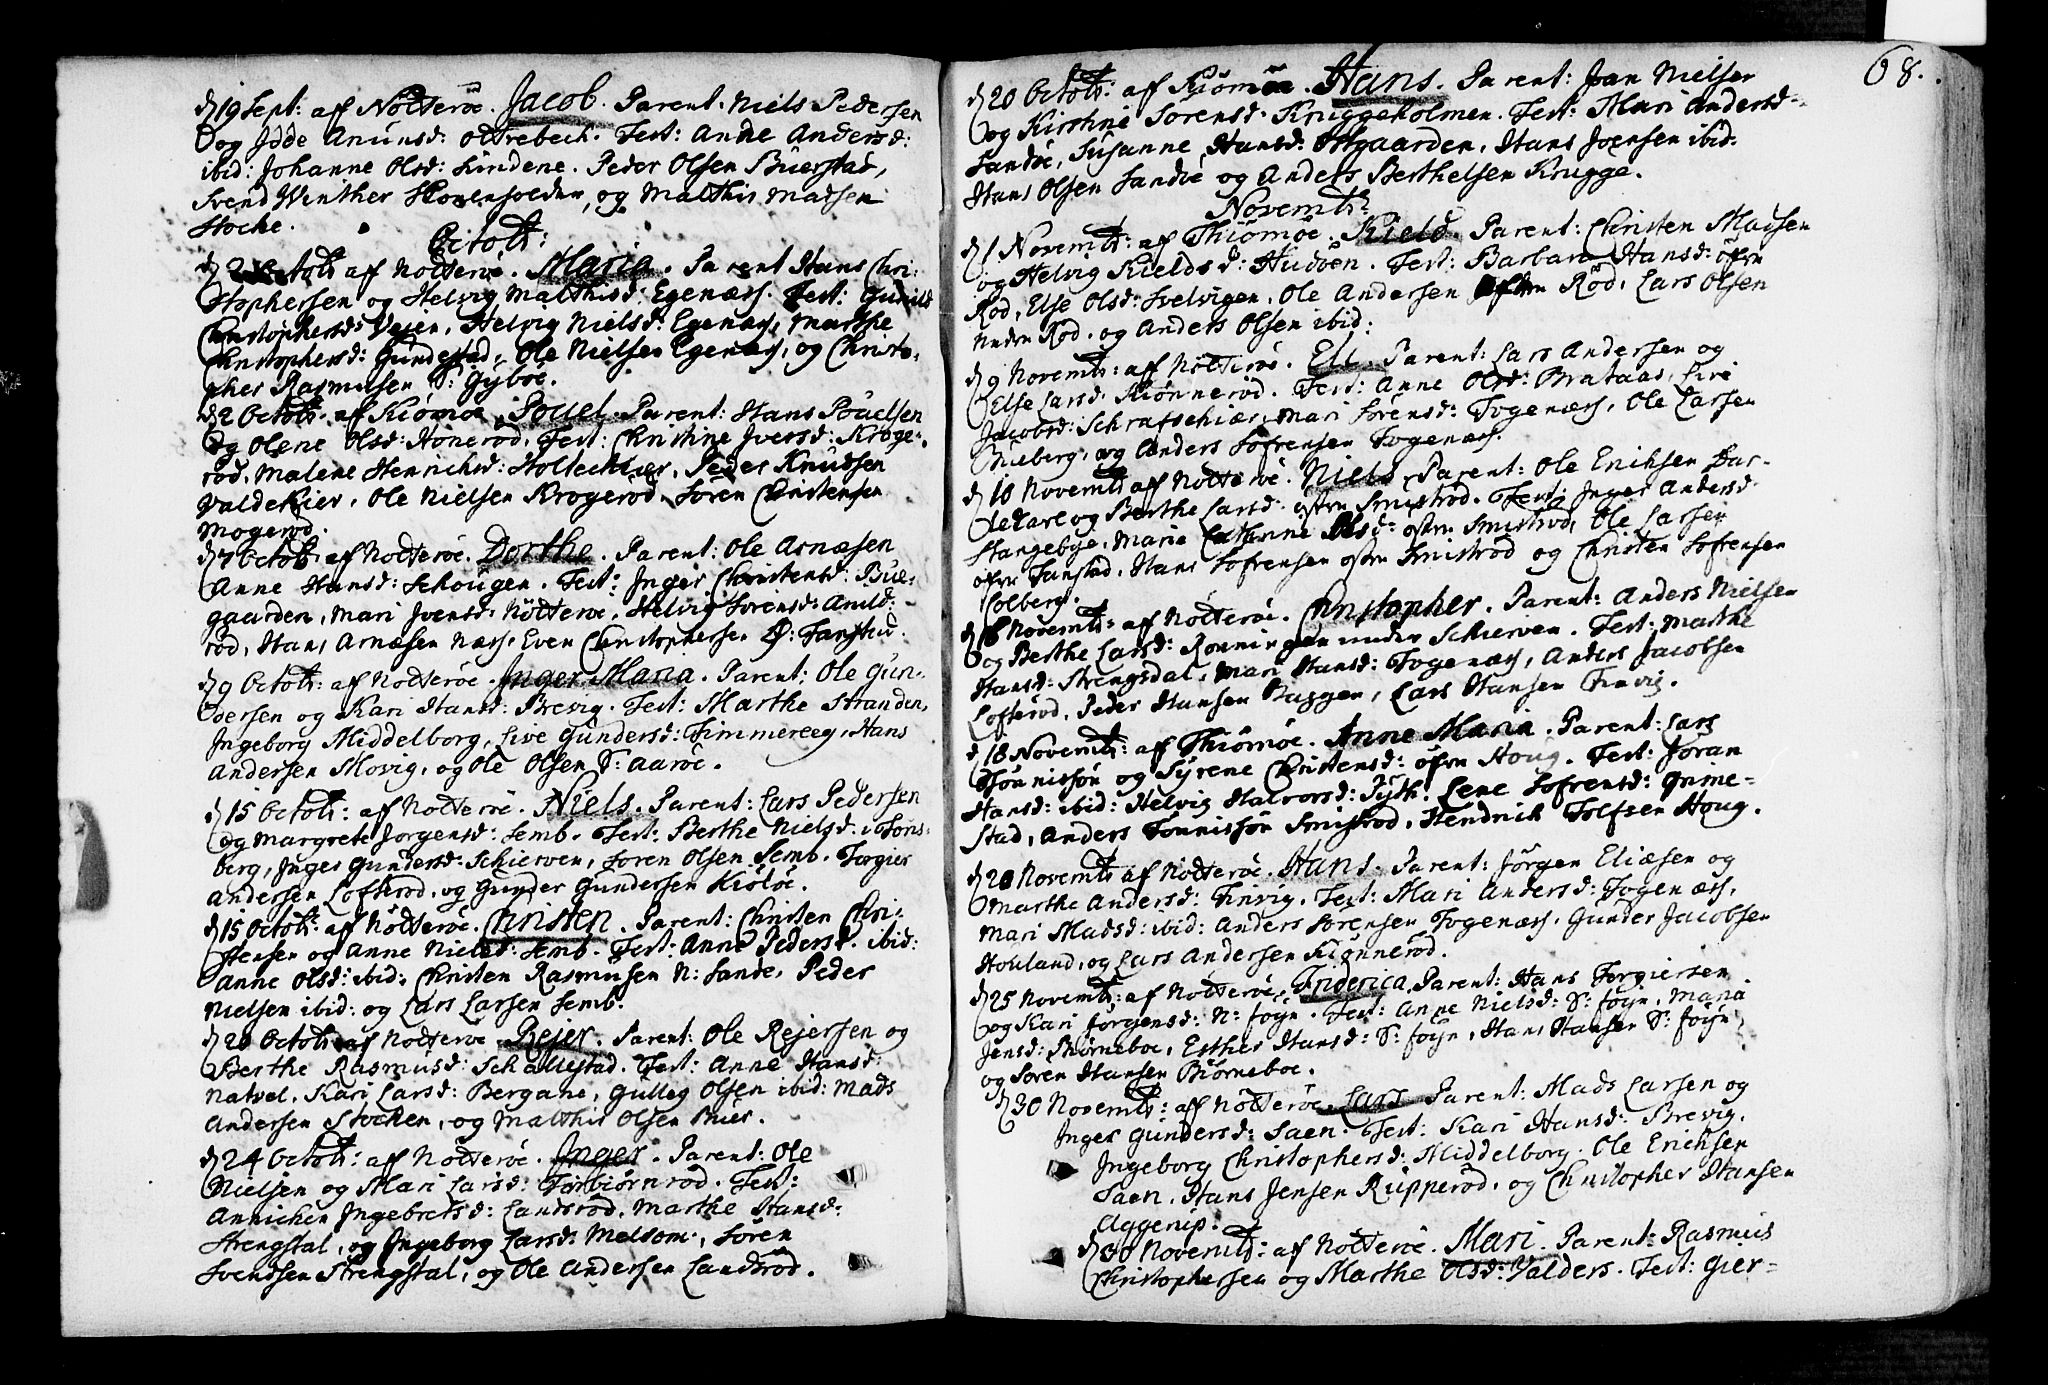 d 19 Sept: af Nötteröe. Jacob. Parent: Niels Pedersen
og Idde Anunsd: Oltrebech. Test: Anne Andersd:
ibid: Johanne Olsd: Lindene. Peder Olsen Buerstad,
Svend Winther Skovenfolden, og Malthis Madsen
Stocke.
Octobr:
d 2 Octobr af Notteröe. Maria. Parent Hans Chri-
stophersen og Helvig Malthisd: Egenæss. Test: Gunild
Christophersd: Veien, Helvig Nielsd: Egenæs, Marthe
Christophersd: Gundestad, Ole Nielsen Egenæs, og Christo-
pher Rasmusen S: Gyboe.
d 2 Octobr. af Kiömöe. Pouel. Parent: Hans Pouelsen
og Olene Olsd: Hönerod. Test: Christine Iversd: Kroge-
rod, Malene Henrichsd: Holtechier, Peder Knudsen
Valdekier, Ole Nielsen Krogerod, Sören Christensen
Mogerod.
d 7 Octobr. af Notteröe. Dorthe. Parent: Ole Arnesen
Anne Hansd: Schougen. Test: Inger Christensd: Bue-
gaarden, Mari Ivensd: Nötteroe, Helvig Sörensd: Arild-
rod, Hans Arnæsen Næss, Even Christophersen Ø: Fanstud.
d 9 Octobr: af Notteröe. Inger Maria. Parent: Ole Gun-
dersen og Kari Hansd: Brevig. Test: Marthe Stranden,
Ingeborg Middelborg, Live Gundersd: Timmereeg, Hans
Andersen Skovig, og Ole Olsen S: Aaröe.
d 15 Octobr: af Notteröe. Niels. Parent: Lars Pedersen
og Margrete Jorgensd: Semb. Test: Berthe Nielsd: i Tons-
berg, Inger Gundersd: Schierven, Soren Olsen Semb. Torgier
Andersen Lofterod, og Gunder Gundersen Kiöloe.
d 15 Octobr: af Nötteröe. Christen. Parent: Christen Chri-
stensen og Anne Nielsd: Semb. Test: Anne Pedersd. ibid:
Anne Olsd: ibid: Christen Rasmusen N: Sande, Peder
Nielsen ibid: og Lars Larsen Semb.
d 20 Octobr af Notteröe. Rejer. Parent: Ole Rejersen og
Berthe Rasmusd: Schallestad. Test: Anne Hansd:
Natvel. Kari Larsd: Bergane, Gulleg Olsen ibid: Mads
Andersen Stocken, og Malthis Olsen Buer.
d 24 Octobr: af Notteröe. Inger. Parent: Ole
Nielsen og Mari Larsd: Torbiörnröd. Test:
Annichen Ingebretsd: Landsrod. Marthe Hansd:
Strengstal, og Ingeborg Larsd: Melsom, Sören
Svendsen Strengstal, og Ole Andersen Landsröd.
68.
d 20 Octobr: af Kiömöe. Hans. Parent: Joan Nielsen
og Kirstine Sörensd: Kruggeholmen. Test: Mari Andersd:
Sandöe, Susanne Hansd: Ostgaarden, Hans Joensen ibid:
Hans Olsen Sandöe og Anders Berthelsen Krugge.
Novembr
d 1 Novembr: af Thiömöe. Kield. Parent: Christen Madsen
og Helvig Kieldsd: Hudöen. Test: Barbara Hansd: öfre
Rod, Else Olsd: Svelvigen, Ole Andersen öfre Röd, Lars Olsen
Nedre Rod, og Anders Olsen ibid:
d 9 Novembr: af Notteröe. Eli. Parent: Lars Andersen og
Else Larsd: Kiönnerod. Test: Anne Olsd: Brataas, Siri
Jacobsd: Schrafsehiær, Mari Sörensd: Togenæss, Ole Larsen
Bieberg, og Anders Sofrensen Togenæss.
d 10 Novembr af Nötteröe. Niels. Parent: Ole Erichsen Bar-
og Berthe Larsd: östre Smistrod. Test: Inger Andersd:
Hangebye, Marie Cathrine Olsd: östre Smistrod, Ole Larsen
öfre Fanstad, Hans Sofrensen östre Smistrod og Christen Sofrensen
Solberg.
d 18 Novembr: af Nötteröe. Christopher. Parent: Anders Nielsen
og Berthe Larsd: Ronningen under Schierven. Test: Marthe
Hansd: Strengsdal, Mari Hansd: Togenæss, Anders Jacobsen
Lofteröd, Peder Hansen Buggen, Lars Hansen Finvig.
d 18 Novembr: af Thiömöe. Anne Maria. Parent: Lars
Tönnissön og Syrene Christensd: öfre Houg. Test: Joran
Hansd: ibid: Helvig Halvorsd: Tyth: Lene Sofrensd: Grime-
stad, Anders Tönnissön Smistrod, Hendrik Tolfsen Houg.
d 20 Novembr af Nötteröe. Hans. Parent: Jörgen Eliæsen og
Marthe Andersd: Finvig. Test: Mari Andersd: Togenæss,
Mari Madsd: ibid: Anders Sorensen Togenæss, Gunder Jacobsen
Houland, og Lars Andersen Kiönnerod.
d 25 Novembr: af Nötteröe. Friderica. Parent: Hans Torgiersen
og Kari Jörgensd: N: Föyn. Test: Anne Nielsd: S: Föyn, Maria
Jensd: Biörneboe, Esther Hansd: S: Föyn, Hans Hansen S: Föyn,
og Soren Hansen Biörneboe.
d 30 Novembr: af Nötteröe. Lars. Parent: Mads Larsen og
Inger Gundersd: Saen. Test: Kari Hansd: Brevig.
Ingeborg Christophersd: Middelborg. Ole Erichsen
Saen, Hans Jensen Rupperöd, og Christopher Hansen
Aggerup.
d 30 Novembr: af Nötteröe. Mari. Parent: Rasmus
Christophersen og Marthe Olsd: Valders. Test: Gier-